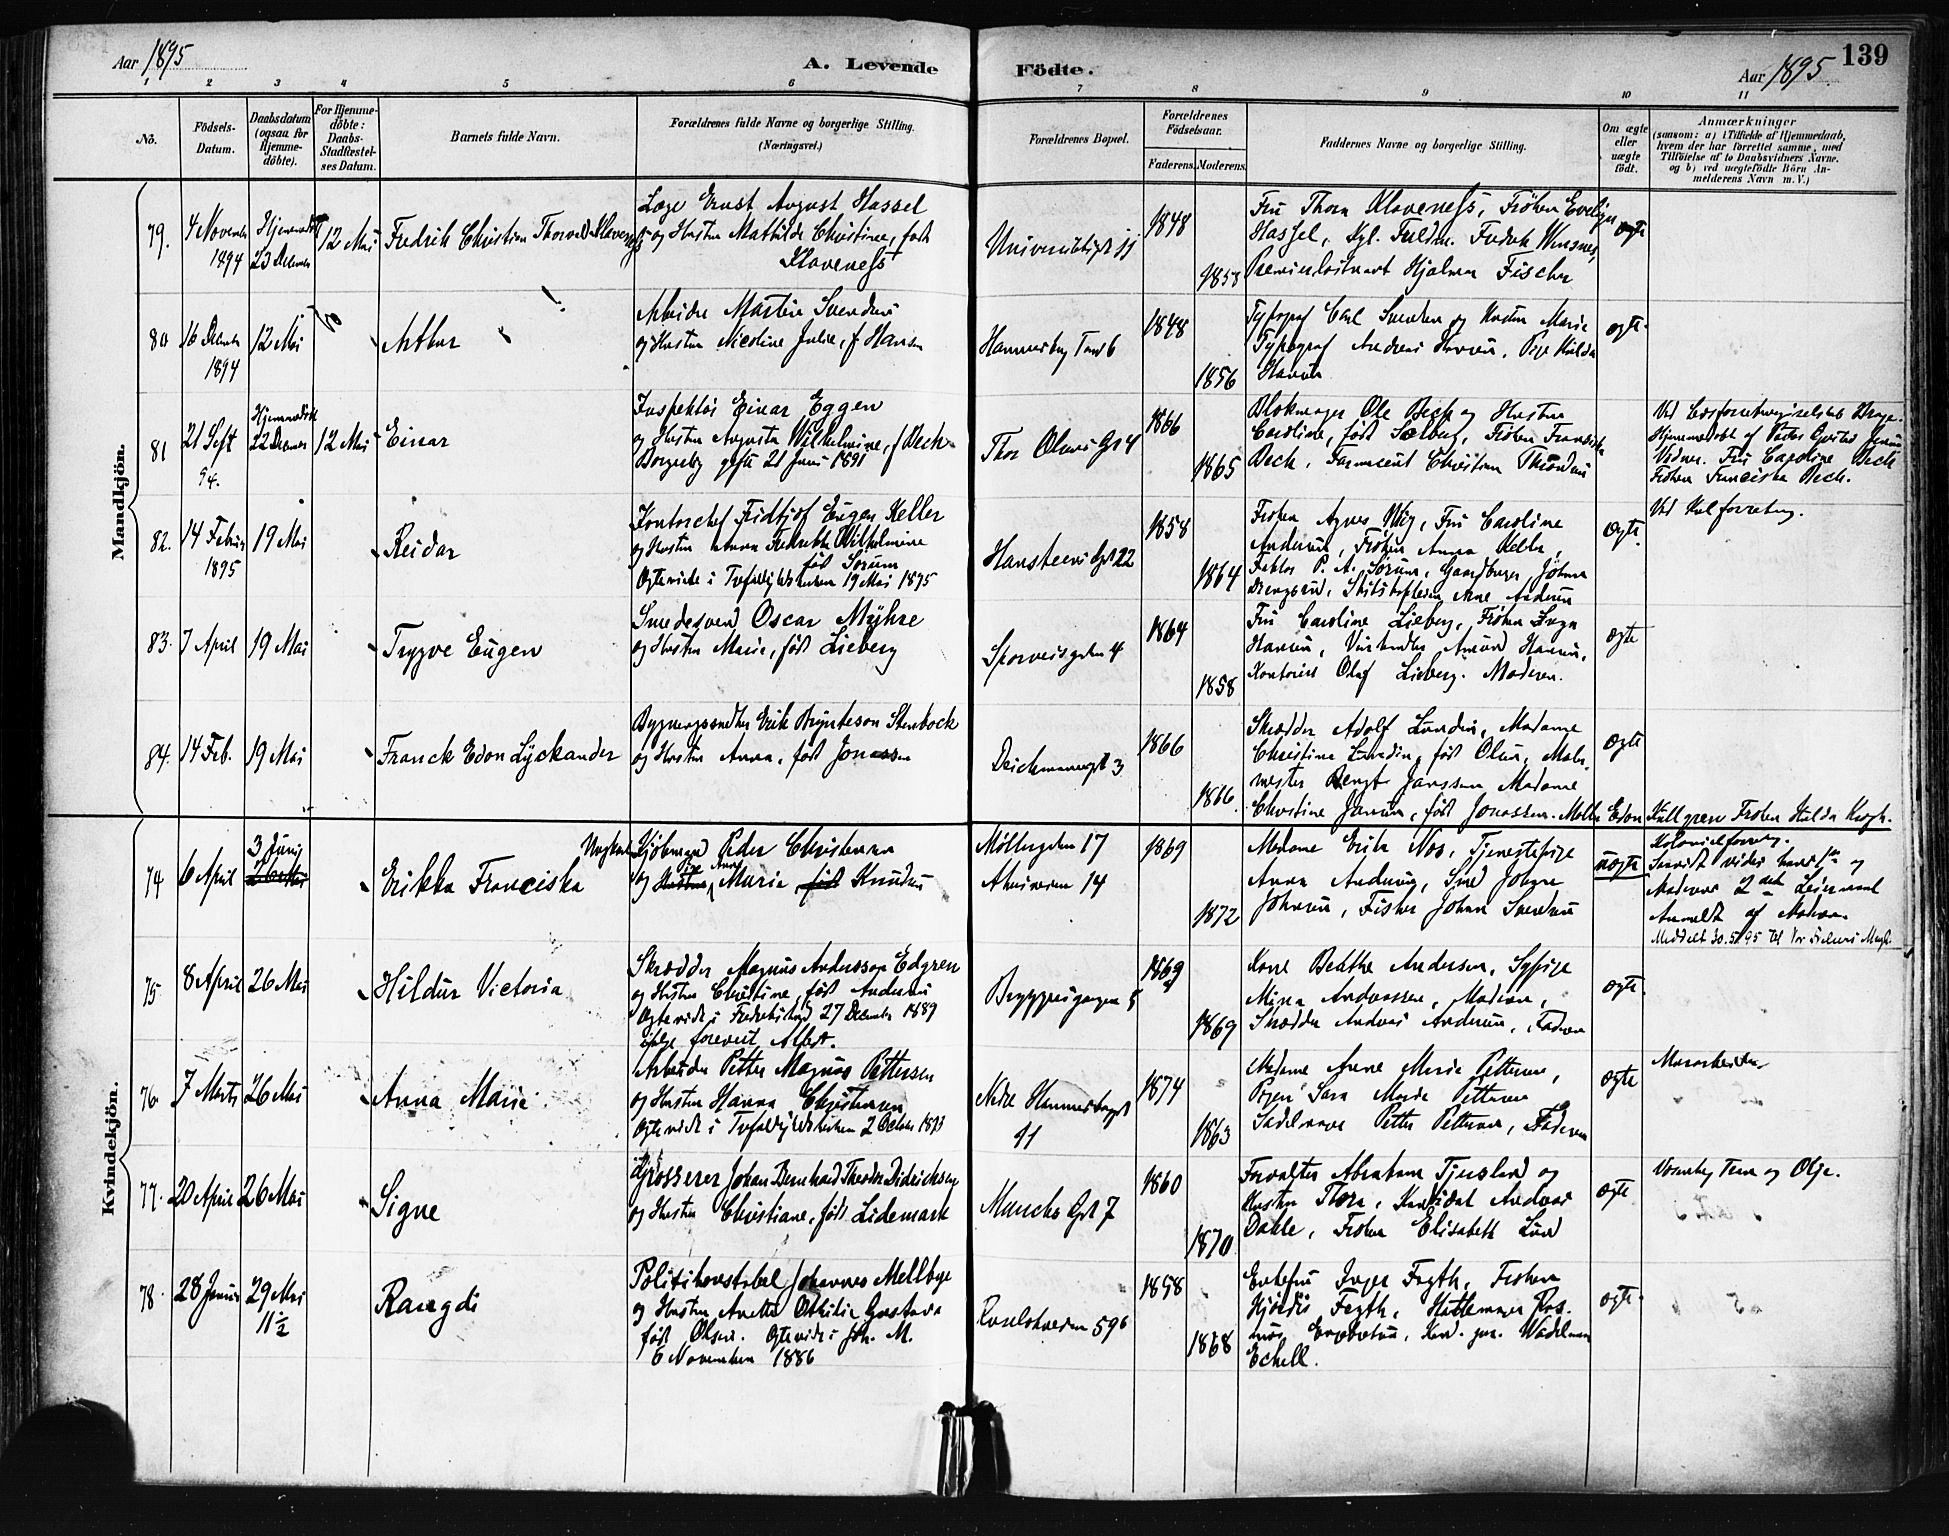 Aar 1895
A. Levende
Födte.
Aar 1895
139
1 2 3 4 5 6 7 8 9 10 11
No.
Födsels-
Datum.
Daabsdatum
(ogsaa for
Hjemme-
döbte).
For Hjemme-
döbte:
Daabs-
Stadfæstel-
ses Datum.
Barnets fulde Navn.
Forældrenes fulde Navne og borgerlige Stilling.
(Næringsvei.)
Forældrenes Bopæl.
Forældrenes
Födselsaar.
Faderens. Moderens.
Faddernes Navne og borgerlige Stilling.
Om ægte
eller
uægte
födt.
Anmærkninger
(saasom: a) i Tilfælde af Hjemmedaab,
hvem der har forrettet samme, med
Tilföielse af to Daabsvidners Navne.
og b) ved uægtefödte Börn An-
melderens Navn m. V.)
Mandkjön.
79.
4 November
1894
Hjemmedöbt
23 December
12 Mai
Fredrik Christian Thorvald Klaveness
Læge Ernst August Hassel
og Hustru Mathilde Christine, født
Klaveness
1848
1853
Fru Thora Klaveness, Frøken Evelyn
Hassel,
Premierløitnant Hjalmar Fischer
ægte
80
16 Decemb
1894
12 Mai
Arthur
Arbeider Martin Svendsen
og Hustru Nicoline Julie, f Hansen
Hammersborg Torv 6
1848
1856
Typograf Carl Svendsen og Hustru Marie
Typograf Andreas Hansen, Pige Hulda
Hansen
ægte.
81
21 Sept
94.
Hjemmedöbt
22 December
12 Mai
Einar
Inspektör Einar Eggen
og Hustru Augusta Wilhelmine, f Bech
Borgerlig gifte 21 Juni 1891
Thor Olsens Gd 4
1866
1865
Blokmager Ole Bech og Hustru
Caroline, født Solberg, Frøken Franciska
Bech, Farmaceut Christian
Hjemmedøbt af
Vidner. Fru Caroline Bech
Frøken Franciska Bech.
82.
14 Februar
1895
19 Mai
Reidar
Kontorchef Fridtjof Eugen Keller
og Hustru Anna Fredrikke Wilhelmine
født Sörum
Ægteviede i Trefoldighedskirken 19 Mai 1895
Hansteens Gd 22
1858
1864
Frøken Agnes Fru Caroline
Andersen, Frøken Anna Keller,
Faktor P. A. Sörum, Gaardbruger Johan
Arne Andersen
ægte.
83.
7 April
19 Mai
Trygve Eugen
Smedesvend Oscar Myhre
og Hustru Marie, født Lieberg
Sporveisgaden 4
1864
1858
Fru Caroline Lieberg, Frøken
Hansen, Hansen,
Kontorist Olaf Lieberg. Moderen.
ægte
84.
14 Feb.
19 Mai
Franck Edon Lyckander
Bygningssnedker Erik Bryntesson Stenbock
og Hustru Anna, født Jonassen
Deichmansgd 3
1866
1866.
Skrædder Adolf Lundin, Madame
Christine Lundin, født Olsen, Maler-
mester Bengt Janssen Madame
Christine Jansen, født Jonassen. Møller Edon Kullgren Frøken Hulda Krogh.
ægte
Kvindekjön.
74
6 April
3 Juni
26 Mai
Erikka Franciska
Ungkarl Sjömand Peder Christensen
og Hustru Pige Anna Marie født Knudsen
Möllergaden 17
Akersveien 14
1869
1872
Madame Erika Næs, Tjenestepige
Anna Andersen, Smed Johan
Johansen, Fisker Johan Svendsen
uægte
Faderens 1ste og
Moderens 2det Leiermaal
Anmeldt af Moderen
Meddelt 30.5.95 til Vor Frelsers Menigh.
75
8 April
26 Mai
Hildur Victoria
Skrædder Magnus Andersson Edgren
og Hustru Christine, født Andersen
Ægteviede i Fredrikshald 27 December 1889
ifølge forevist Attest.
Bryggerigangen 5
1869
1869
Kone Beathe Andersen, Sypige
Mina Andreassen, Moderen,
Skrædder Andreas Andersen, Faderen
ægte.
76.
7 Marts
26 Mai
Anna Marie
Arbeider Petter Magnus Pettersen
og Hustru Hanna Christensen
Ægteviede i Trefoldighedskirken 2 October 1893
Nedre Hammersborgd
11
1874
1863
Madame Anne Marie Pettersen,
Pigen Sara Marie Pettersen
Sadelmager Petter Pettersen, Faderen
ægte
77.
20 April
26 Mai
Signe
Grosserer Johan Bernhard Theodor Didricksen
og Hustru Christiane, født Lidemark
Munchs Gd 7
1860
1870
Forvalter Abraham Tjersland og
Hustru Thora, Kandidat Andreas
Dahle, Frøken Elisabeth Lund
ægte
78.
28 Januar
29 Mai
11½
Rangdi
Politikonstabel Johannes Mellbye
og Hustru Anette Othilie Gustava
født Olsen. Ægteviede i Joh. M.
6 November 1886
59 b
1858
1868
Enkefru Inger Fegth, Frøken
Hjördis Fegth, Hattemager Ras-
mus
Echell.
ægte.